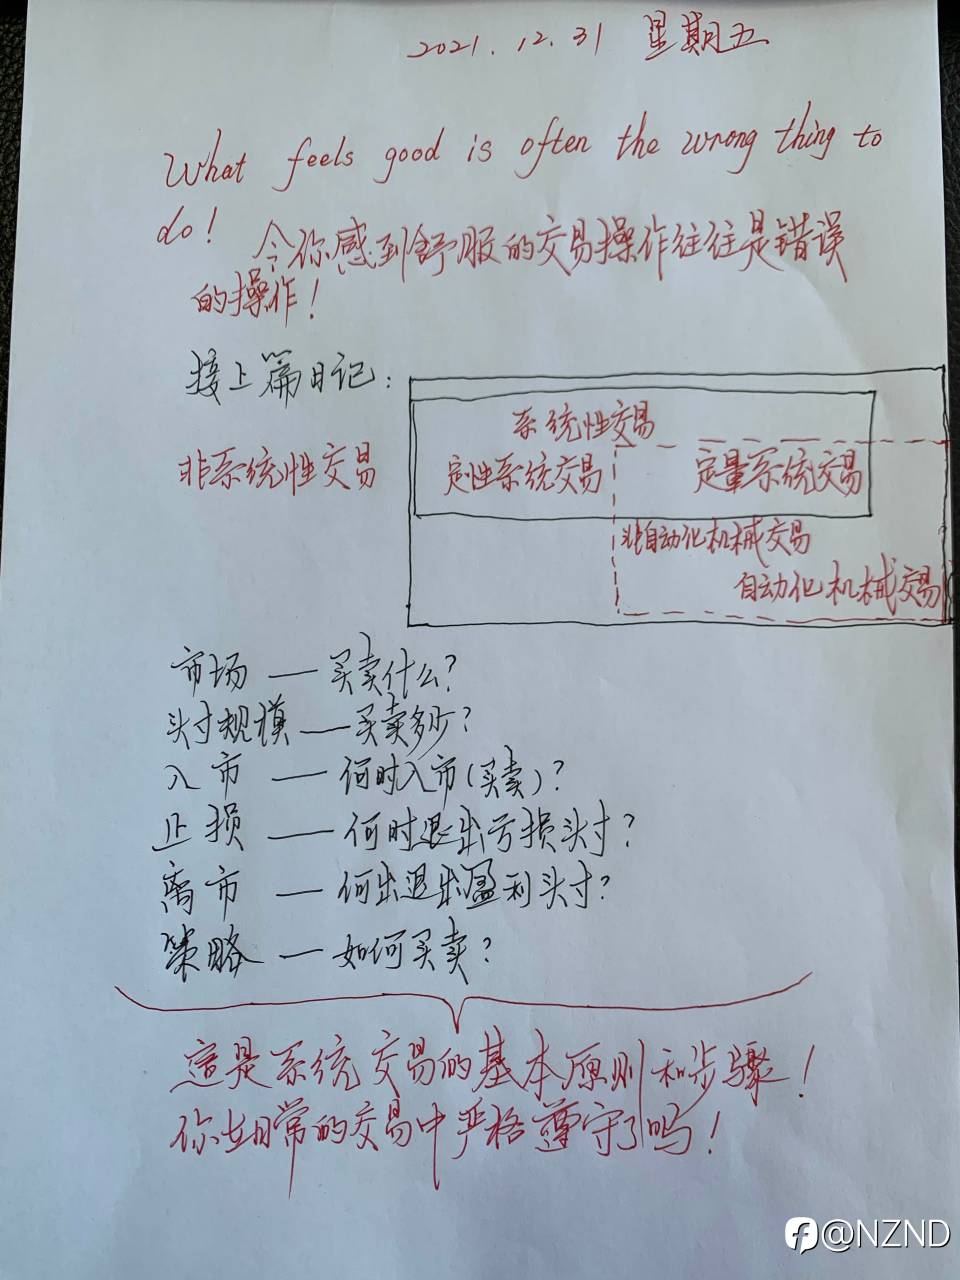 2021.12.31 星期五
What feels good is often the wrong thing to
do! 令你感到舒服的交易操作往往是错误
的操作!
接上篇日记:
系统性交易
非系统性交易 定性系统交易 定量系统交易
非自动化机械交易
自动化机械交易
市场 — 买卖什么?
头寸规模 — 买卖多少?
入市 — 何时入市(买卖)?
止损 — 何时退出亏损头寸?
离市 — 何出退出盈利头寸?
策略 — 如何买卖?
这是系统交易的基本原则和步骤!
你在日常的交易中严格遵守了吗!
@NZND